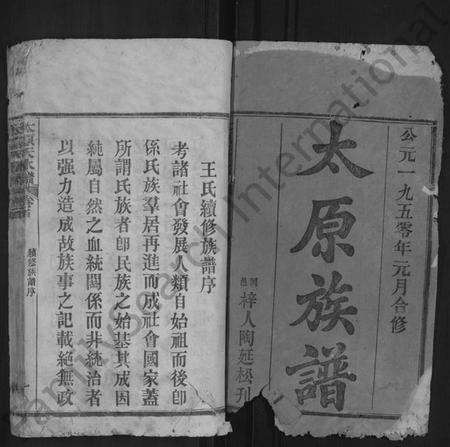 公元一九五零年元月合修
太原族譜
梓人陶延松刊
王氏續修族譜序
考諸社會發展人類自始祖而後卽
係氏族羣居再進而成社會國家蓋
所謂氏族者卽民族之始基其成因
純屬自然之血統關係而非統治者
以强力造成故族事之記載絕無政
續修族譜序
FamilySearch International